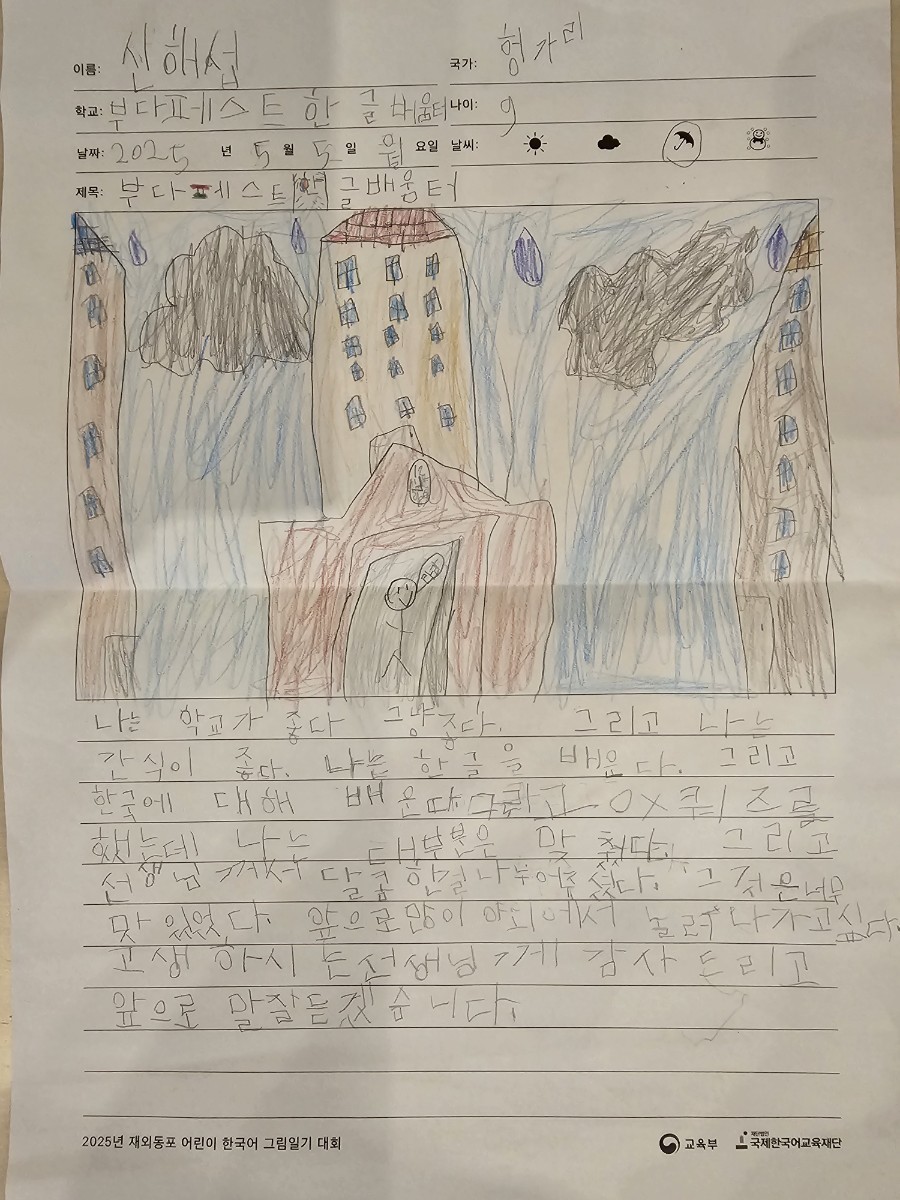 이름: 신해섭 국가: 헝가리
학교: 부다페스트 한글배움터 나이: 9
날짜: 2025 년 5 월 5 일 월 요일 날씨:
제목: 부다페스트 한글배움터
나는 학교가 좋다 그냥 좋다. 그리고 나는
간식이 좋다. 나는 한글을 배운다. 그리고
한국에 대해 배운다 그리고 OX퀴즈를
했는데 나는 대부분은 맞췄다. 그리고
선생님께서 달콤한걸 나누어주셨다. 그것은너무
맛있었다. 앞으로많이 야외에서 놀러 나가고싶다.
고생하시는선생님께 감사드리고
앞으로 말잘듣겠습니다.
2025년 재외동포 어린이 한국어 그림일기 대회 교육부 재단법인 국제한국어교육재단